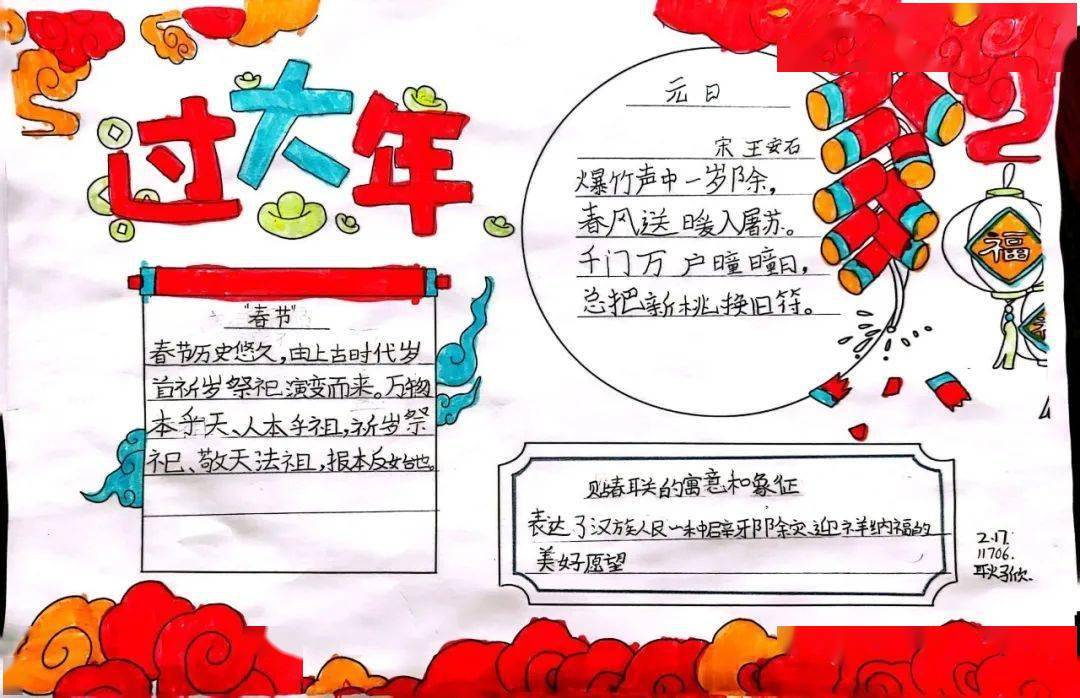 过大年
"春节"
春节历史悠久,由上古时代岁
首祈岁祭祀演变而来。万物
本乎天、人本乎祖,祈岁祭
祀、敬天法祖,报本反始也。
元日
宋 王安石
爆竹声中一岁除,
春风送暖入屠苏。
千门万户曈曈日,
总把新桃换旧符。
福
贴春联的寓意和象征
表达了汉族人民一种辟邪除灾、迎祥纳福的
美好愿望
2.17.
11706.